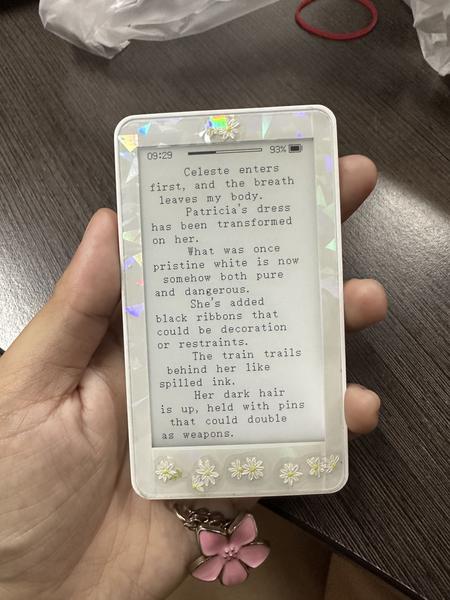 09:29 93%
Celeste enters
first, and the breath
leaves my body.
Patricia's dress
has been transformed
on her.
What was once
pristine white is now
somehow both pure
and dangerous.
She's added
black ribbons that
could be decoration
or restraints.
The train trails
behind her like
spilled ink.
Her dark hair
is up, held with pins
that could double
as weapons.